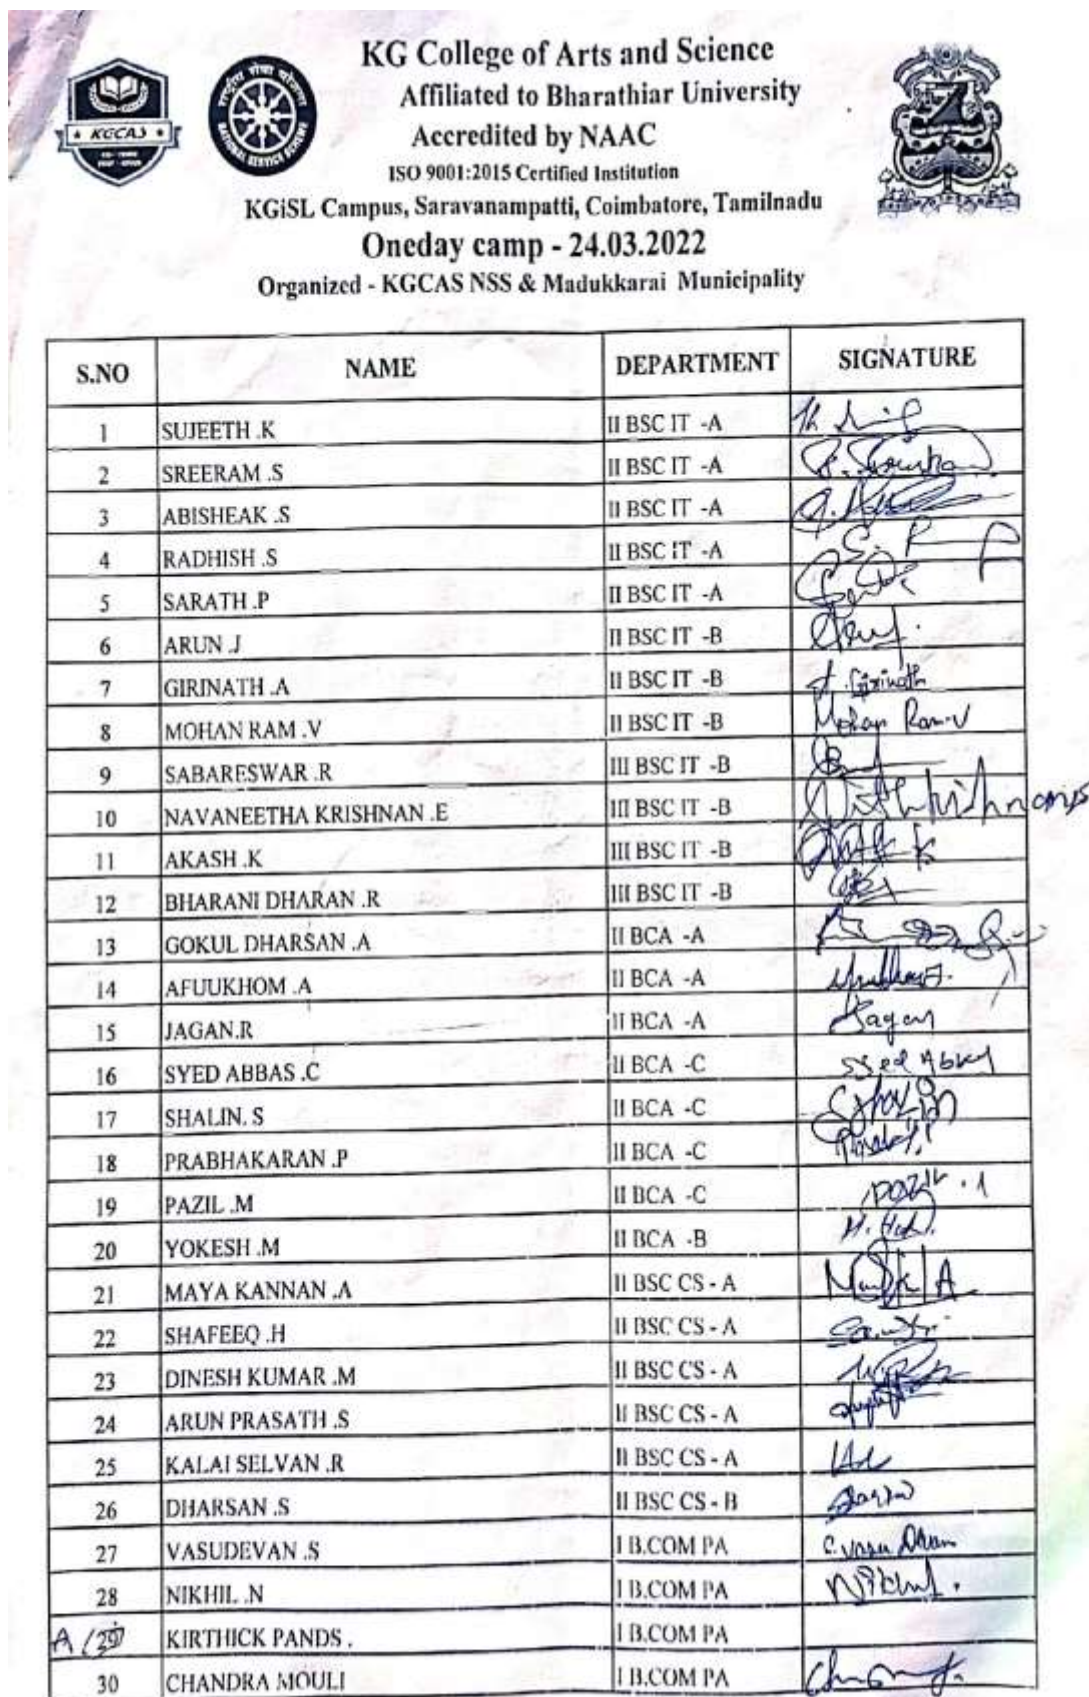 KG College of Arts and Science
Affiliated to Bharathiar University
Accredited by NAAC
ISO 9001:2015 Certified Institution
KGiSL Campus, Saravanampatti, Coimbatore, Tamilnadu
Oneday camp - 24.03.2022
Organized - KGCAS NSS & Madukkarai Municipality
KGCAS
राष्ट्रीय सेवा योजना
NATIONAL SERVICE SCHEME
S.NO NAME DEPARTMENT SIGNATURE
1 SUJEETH .K II BSC IT -A
2 SREERAM .S II BSC IT -A
3 ABISHEAK .S II BSC IT -A
4 RADHISH .S II BSC IT -A
5 SARATH .P II BSC IT -A
6 ARUN .J II BSC IT -B
7 GIRINATH .A II BSC IT -B Girinath
8 MOHAN RAM .V II BSC IT -B Mohan Ram.V
9 SABARESWAR .R III BSC IT -B
10 NAVANEETHA KRISHNAN .E III BSC IT -B
11 AKASH .K III BSC IT -B
12 BHARANI DHARAN .R III BSC IT -B
13 GOKUL DHARSAN .A II BCA -A
14 AFUUKHOM .A II BCA -A
15 JAGAN.R II BCA -A Jagan
16 SYED ABBAS .C II BCA -C Syed Abbas
17 SHALIN. S II BCA -C
18 PRABHAKARAN .P II BCA -C
19 PAZIL .M II BCA -C
20 YOKESH .M II BCA -B
21 MAYA KANNAN .A II BSC CS - A
22 SHAFEEQ .H II BSC CS - A
23 DINESH KUMAR .M II BSC CS - A
24 ARUN PRASATH .S II BSC CS - A
25 KALAI SELVAN .R II BSC CS - A
26 DHARSAN .S II BSC CS - B
27 VASUDEVAN .S I B.COM PA
28 NIKHIL .N I B.COM PA Nikhil.
A /29 KIRTHICK PANDS . I B.COM PA
30 CHANDRA MOULI I B.COM PA